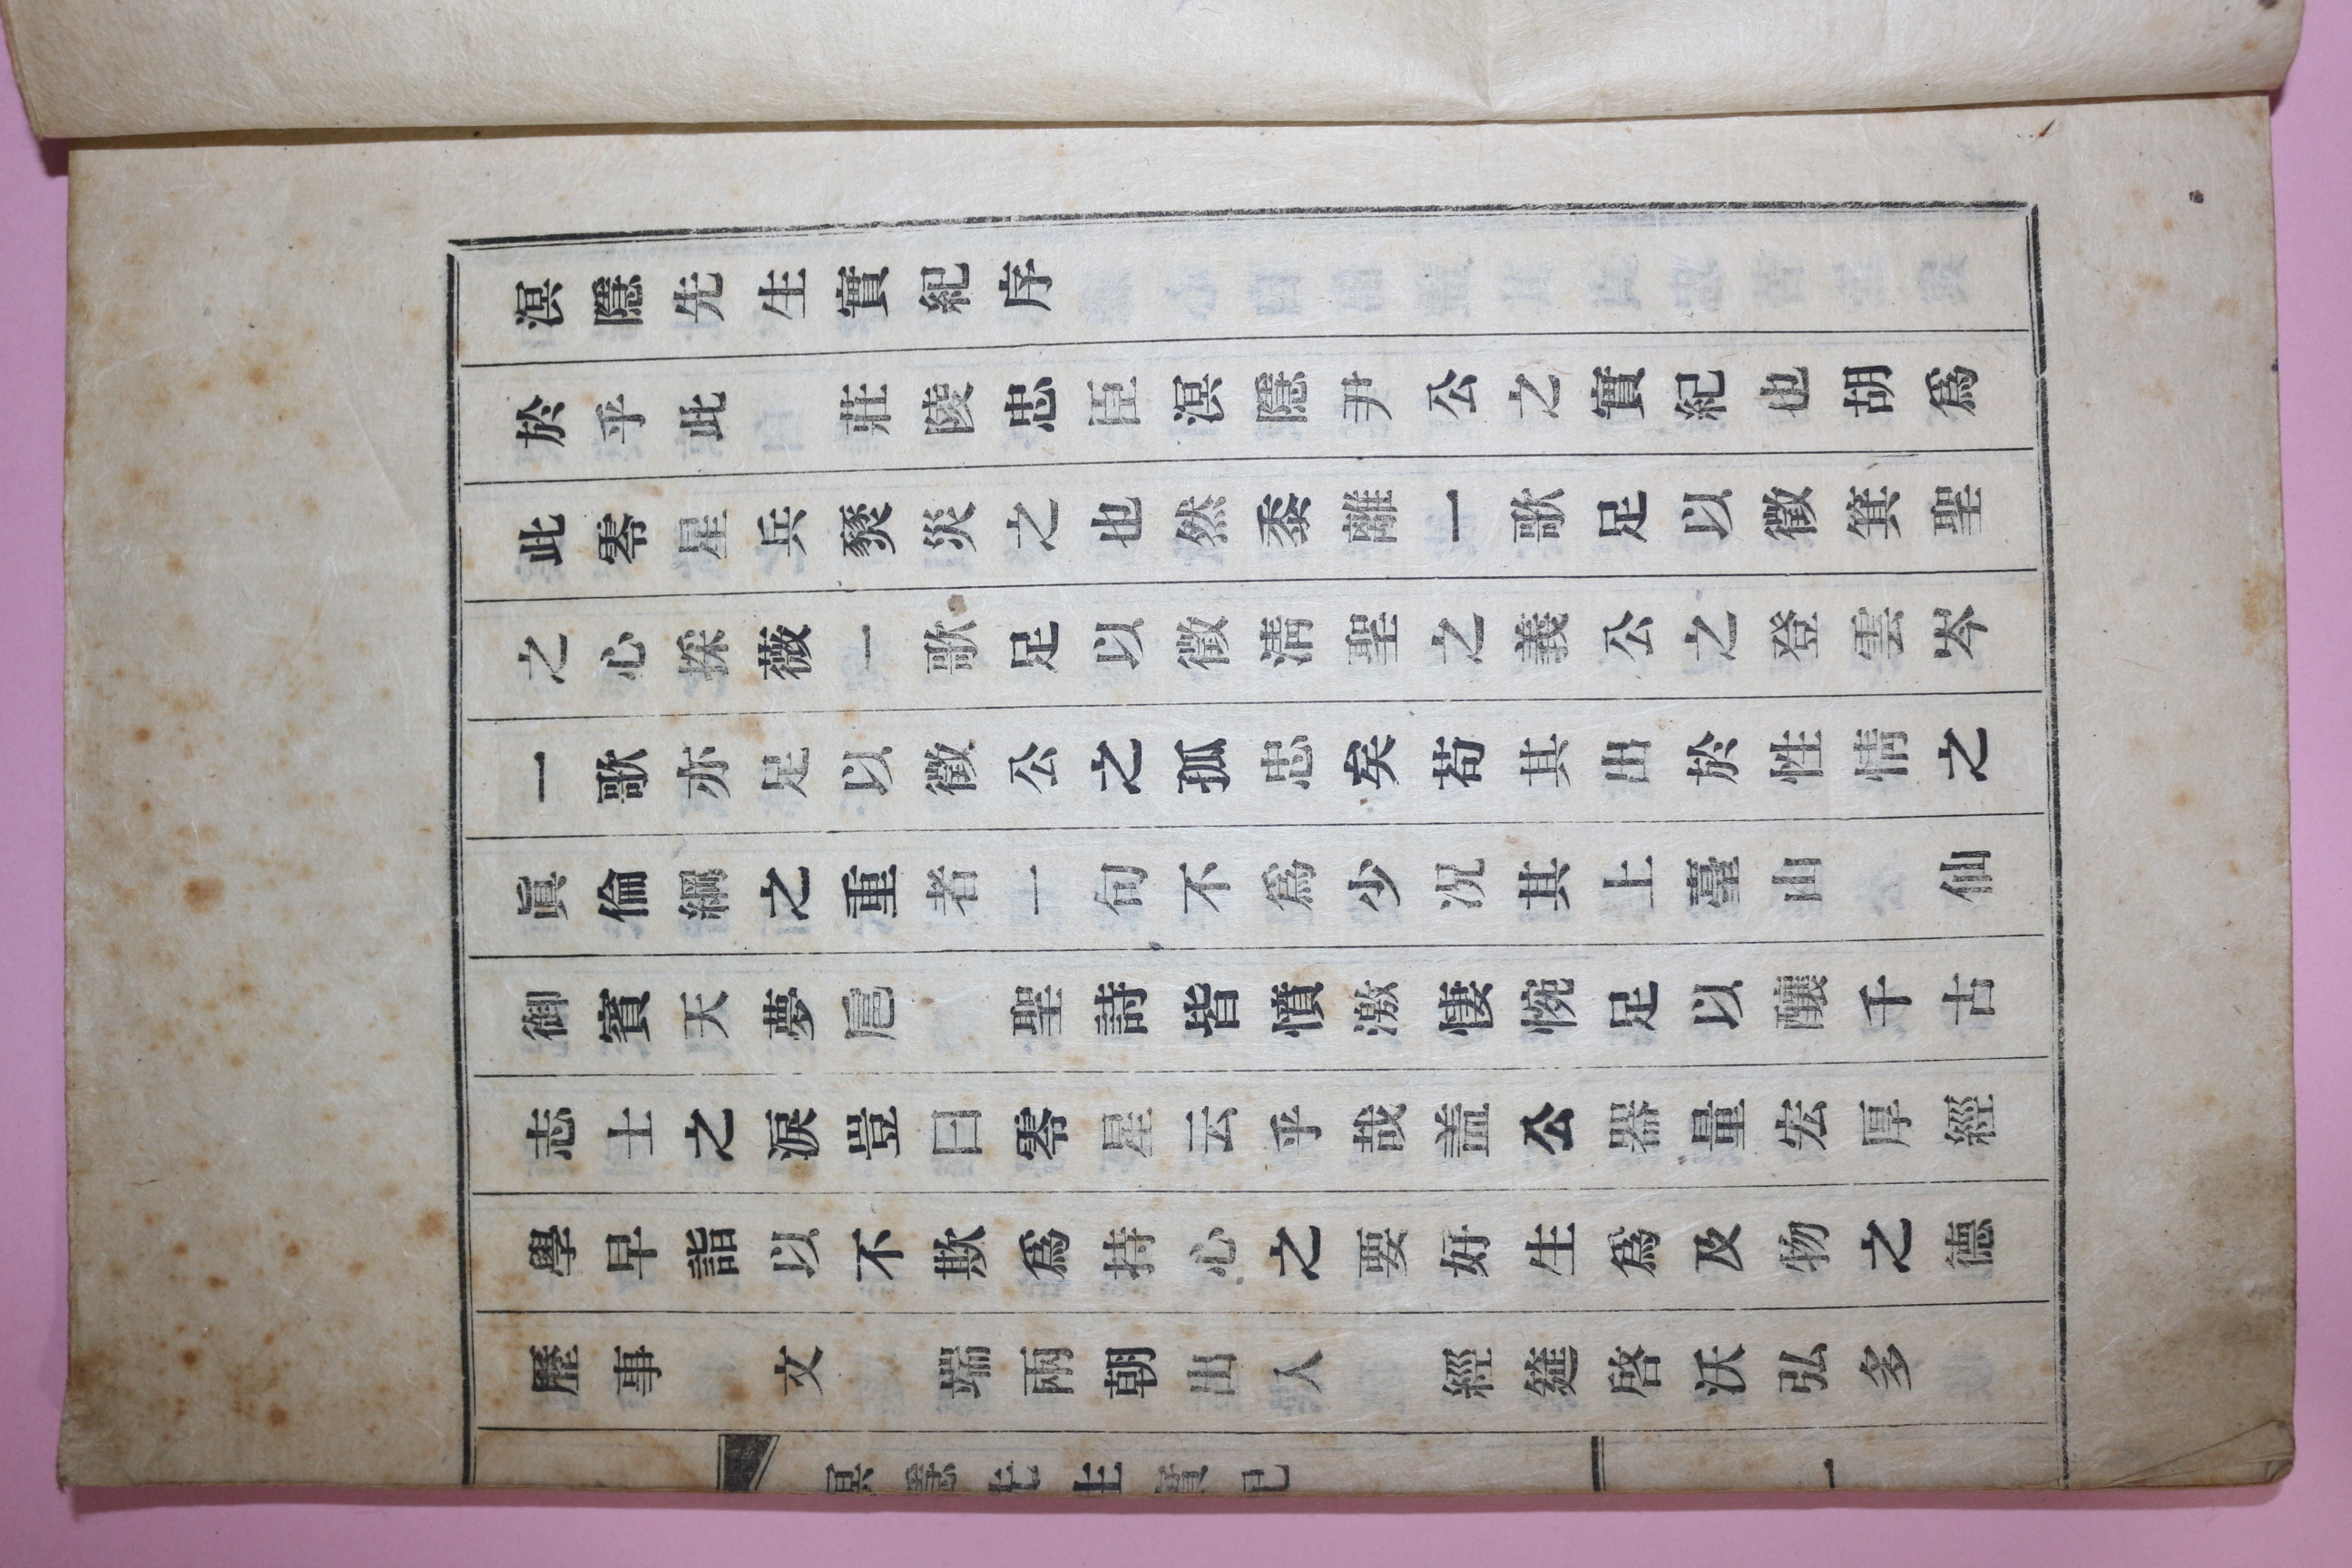 溟隱先生實紀序
於乎此　莊陵忠臣溟隱尹公之實紀也胡爲
此零星兵燹災之也然黍離一歌足以徵箕聖
之心採薇一歌足以徵淸聖之義公之登雲岑
一歌亦足以徵公之孤忠矣苟其出於性情之
眞倫綱之重者一句不爲少况其上臺山　仙
御賓天夢扈　聖詩皆憤激悽惋足以釀千古
志士之淚豈曰零星云乎哉盖公器量宏厚經
學早詣以不欺爲持心之要好生爲及物之德
歷事　文　端兩朝出入　經筵啓沃弘多
溟隱先生實紀　一